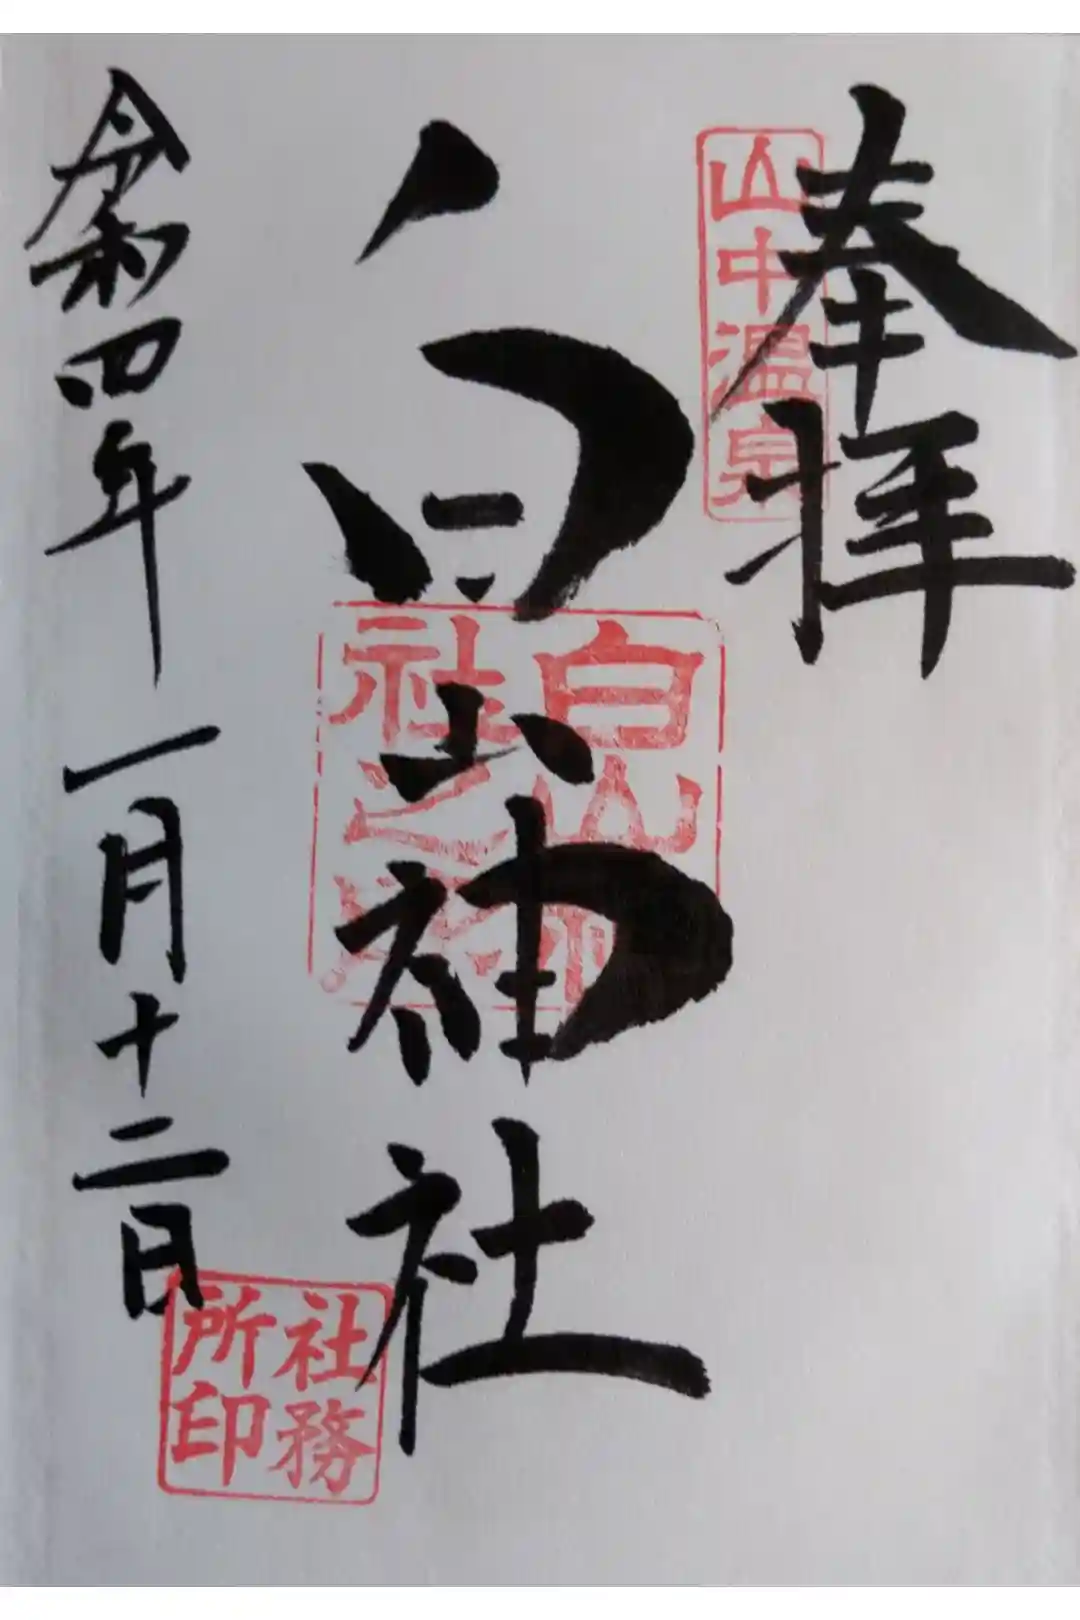 奉拝
山中温泉
白山神社
白山神
社之
令和四年一月十二日
社務
所印